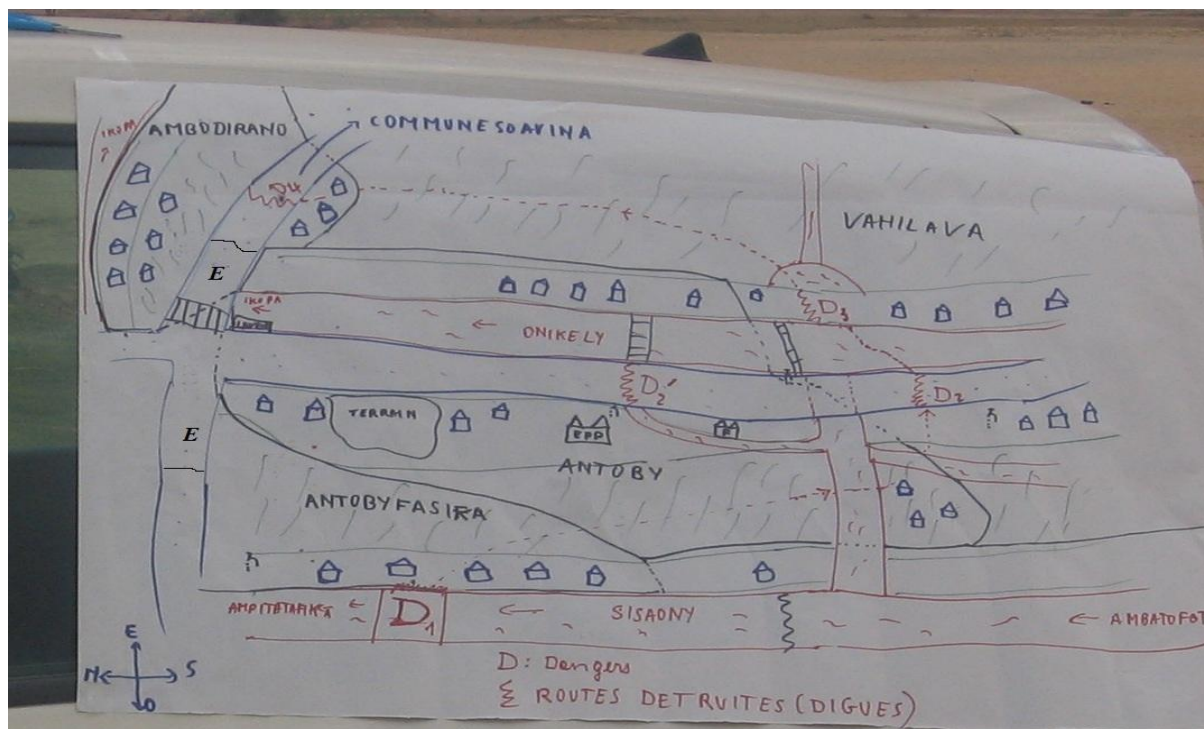 IKOPA
AMBODIRANO
COMMUNE SOAVINA
D4
VAHILAVA
E
IKOPA
D3
ONIKELY
D2'
D2
E
TERRAIN
EPP
ANTOBY
ANTOBYFASIRA
D1
SISAONY
AMBATOFOT
E
N
S
O
D: Dangers
ROUTES DETRUITES (DIGUES)